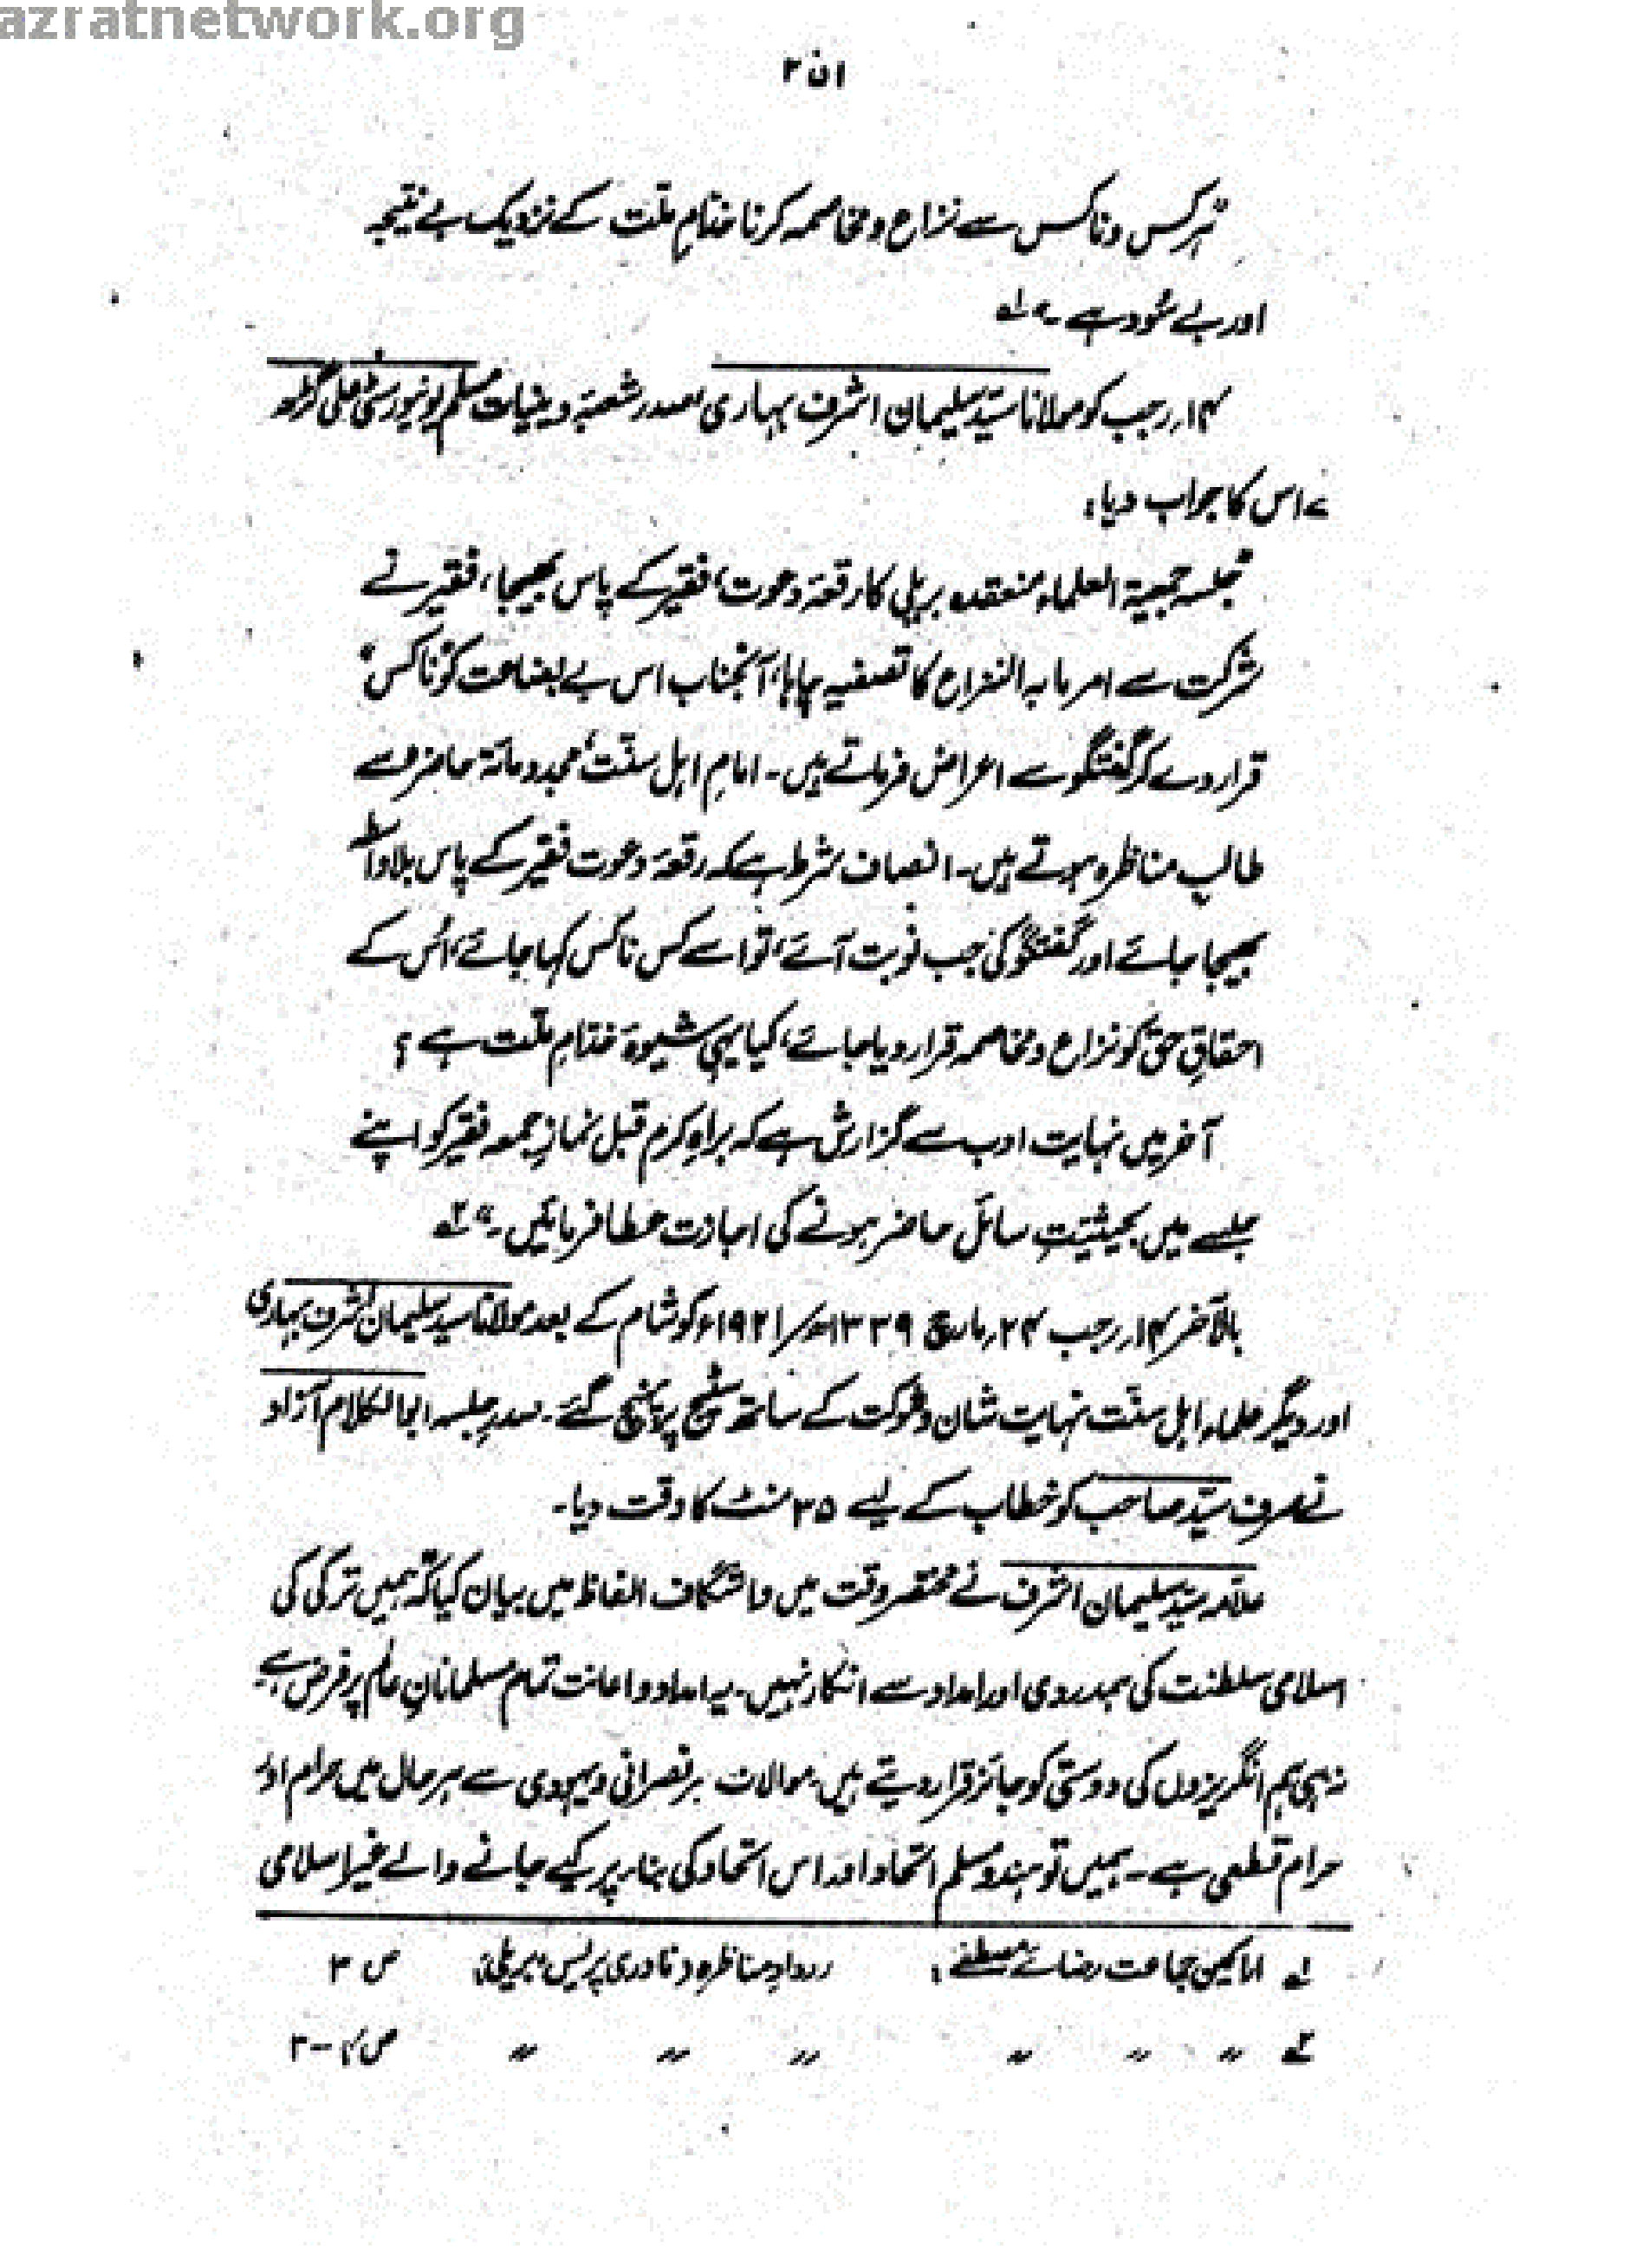 azratnetwork.org
۲۵۱
"ہر کس و ناکس سے نزاع و مخاصمہ کرنا خدامِ ملّت کے نزدیک بے نتیجہ
اور بے سُود ہے۔" ۱؎
۱۴؍ رجب کو مولانا سیّد سلیمان اشرف بہاری صدر شعبۂ دینیات مسلم یونیورسٹی علی گڑھ
نے اس کا جواب دیا:
"جلسہ جمعیۃ العلماء منعقدہ بریلی کا رقعۂ دعوت، فقیر کے پاس بھیجا، فقیر نے
شرکت سے امر ما بہ النزاع کا تصفیہ چاہا، آنجناب اس بے بضاعت کو "ناکس"
قرار دے کر گفتگو سے اعراض فرماتے ہیں۔ امامِ اہلِ سنّت، مجدد مائۃ حاضرہ سے
طالبِ مناظرہ ہوتے ہیں۔ انصاف شرط ہے کہ رقعۂ دعوت فقیر کے پاس بلاواسطہ
بھیجا جائے اور گفتگو کی جب نوبت آئے، تو اسے کس ناکس کہا جائے، اُس کے
احقاقِ حق کو نزاع و مخاصمہ قرار دیا جائے، کیا یہی شیوۂ خدامِ ملّت ہے؟
آخر میں نہایت ادب سے گزارش ہے کہ براہِ کرم قبل نمازِ جمعہ فقیر کو اپنے
جلسے میں بحیثیتِ سائل حاضر ہونے کی اجازت عطا فرمائیں۔" ۲؎
بالآخر ۱۴؍ رجب ۲۴؍ مارچ ۱۳۳۹ھ/۱۹۲۱ء کو شام کے بعد مولانا سید سلیمان اشرف بہاری
اور دیگر علماء اہلِ سنّت نہایت شان و شوکت کے ساتھ سٹیج پر پہنچ گئے۔ صدرِ جلسہ ابوالکلام آزاد
نے صرف سیّد صاحب کو خطاب کے لیے ۳۵ منٹ کا وقت دیا۔
علامہ سید سلیمان اشرف نے مختصر وقت میں واشگاف الفاظ میں بیان کیا کہ "ہمیں ترکی کی
اسلامی سلطنت کی ہمدردی اور امداد سے انکار نہیں۔ یہ امداد و اعانت تمام مسلمانانِ عالم پر فرض ہے
نہ ہی ہم انگریزوں کی دوستی کو جائز قرار دیتے ہیں، موالات ہر نصرانی و یہودی سے ہر حال میں حرام اور
حرام قطعی ہے۔ ہمیں تو ہندو مسلم اتحاد اور اس اتحاد کی بناء پر کیے جانے والے غیر اسلامی
۱؎ اراکین جماعت رضائے مصطفے: رودادِ مناظرہ (نادری پریس، بریلی) ص ۳
۲؎ " " " " " " ص ۴-۳